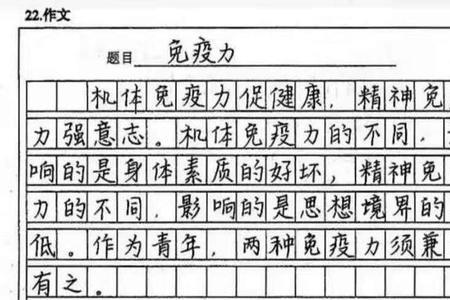 22.作文
题目 免疫力
机体免疫力促健康，精神免
力强意志。机体免疫力的不同，
响的是身体素质的好坏，精神免
力的不同，影响的是思想境界的
低。作为青年，两种免疫力须兼
有之。